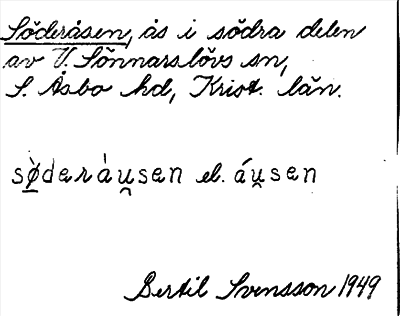 Söderåsen, ås i södra delen
av V. Sönnarslövs sn,
S. Åsbo hd, Krist. län.
sø̀deràu̯sen el. áu̯sen
Bertil Svensson 1949